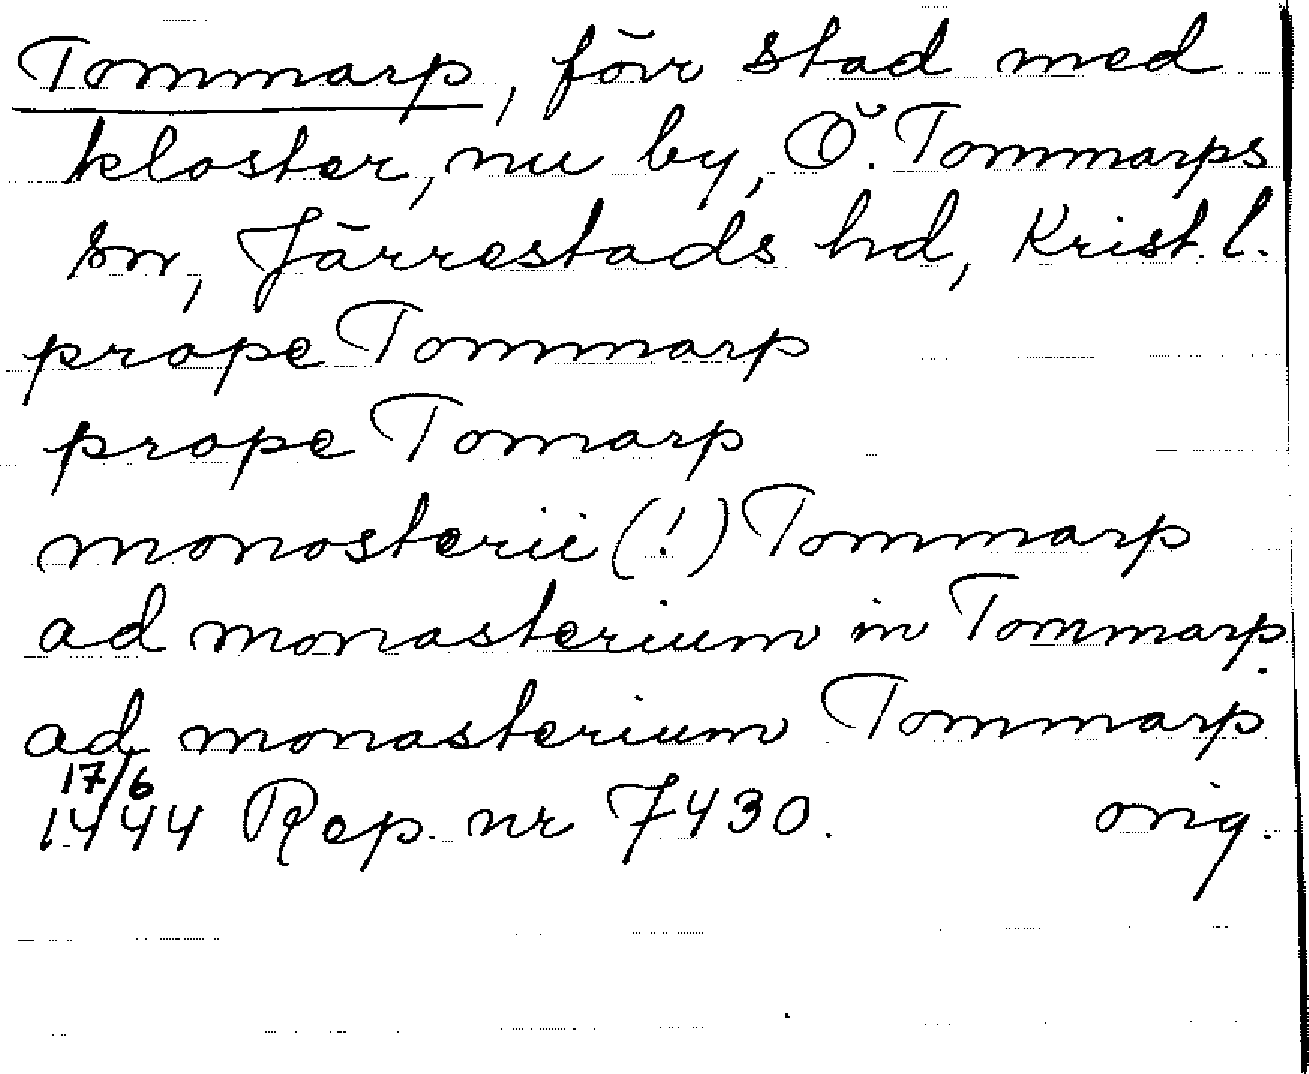 Tommarp, förr stad med
kloster, nu by, Ö. Tommarps
sn, Järrestads hd, Krist. l.
prope Tommarp
prope Tomarp
monosterii (!) Tommarp
ad monasterium in Tommarp.
ad monasterium Tommarp
17/6
1444 Rep. nr 7430. orig.